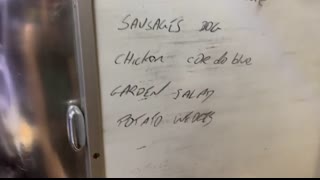 SAUSAGES DOG
Chicken cordo blue
GARDEN SALAD
POTATO WEDGES